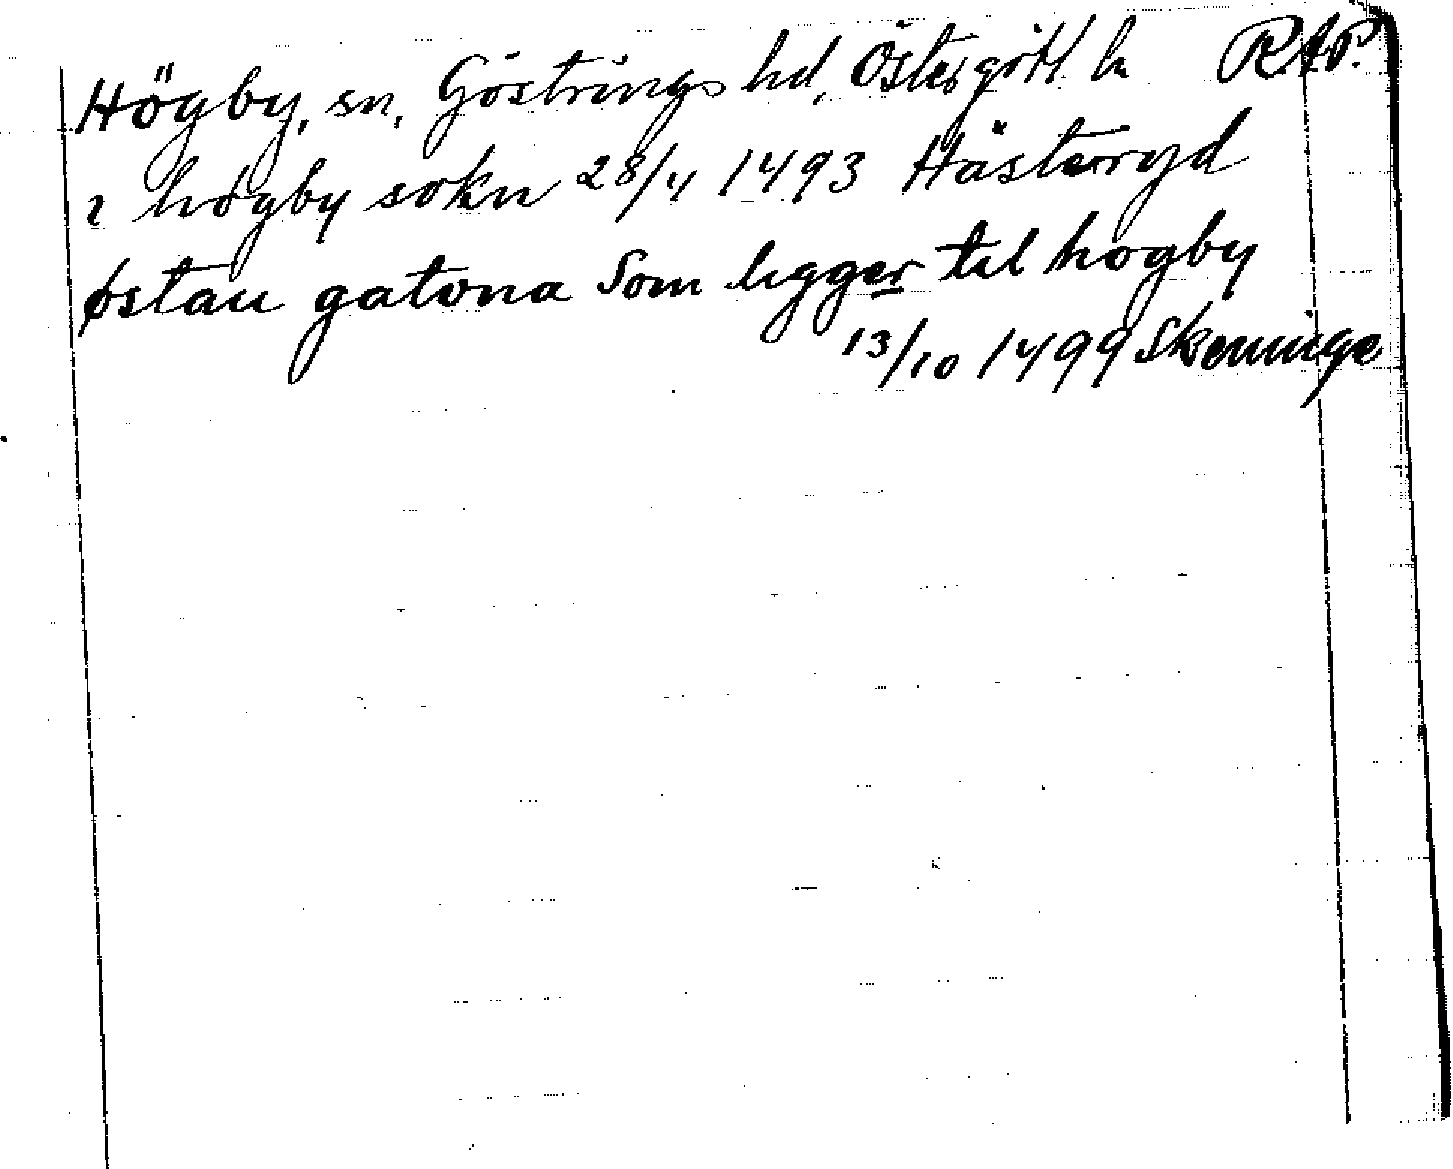 Högby, sn, Göstrings hd, Östergötl ln RAP.
i högby sokn 28/4 1493 Hästeryd
østan gatona Som ligger til högby
13/10 1499 Skeninge